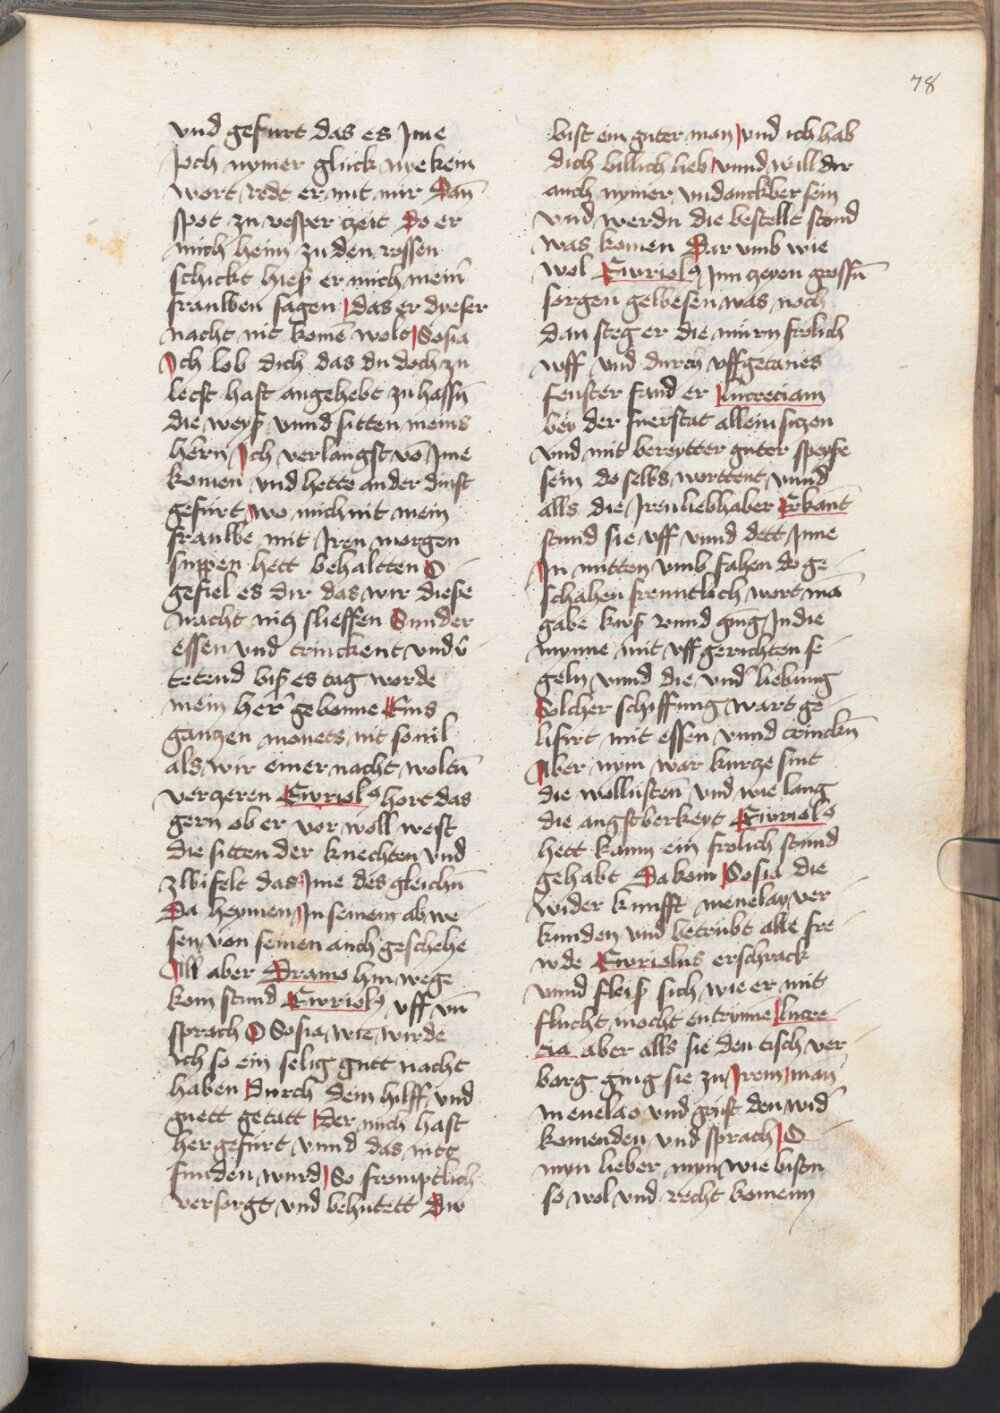 78
vnd gefurt das es Jme
Joch nymer gluck nye kein
wort redt er mit mir Dan̄
spot zu vesper zeit Do er
mich heim zu den rossen
schickt hieß er mich mein̄
frauwen sagen das er dyeser
nacht nit komē wolt Sosia
Ich lob dich das du doch zu
lecst hast angehebt zu hassn̄
die weyß vnnd sitten meins
hern Ich verlangst vō Jme
komen vnd hette an der dinst
gefurt wo mich nit mein
frauwe mit Jren morgen
suppen hett behaltten O
gefiel es dir das wir diese
nacht nit slieffen Sunder
essen vnd trinckent vnd v̄
tetend biß es tag worde
mein her gebonne Eins
gantzen monets nit souil
als wir einer nacht woltn̄
verzeren Ewriolꝰ hort das
gern ob er vor woll west
die sitten der knechten vnd
zwifelt das Jme des gleichn̄
Da heymen Jn seinem abwe
sen von seinen auch geschehe
All aber Dramo hin wege
kom stund Ewriolꝰ vff vn̄
sprach O Sosia wie wirde
ich so ein selig gutt nacht
haben Durch dein hilff vnd
guett getatt Der mich hast
her gefurt vnnd das nitt
funden wurd So fromptlich
versorgt vnd behutett Dw
bist ein guter man vnd ich hab
dich billich lieb vnnd will dir
auch nymer vndanckber sein
vnd werdn die bestellt stond
was komen Dar vmb wie
wol Ewriolꝰ Jm zeyen grossn̄
sorgen gewesen was noch
dan steg er die murn frolich
vff vnd durch vffgetanes
fenster fand er Lucreciam
bey der fuerstat allein sitzen
vnd mit bereytter guter speyse
sein do selbs worttent vnnd
alls die Jren liebhaber Erkant
stund sie vff vnnd dett Jme
Jn mitten vmb fahen do ge
schahen freuntlich wort mā
gabe kuß vnnd ging Jn die
mynne mit vff gerichten se
geln vnnd die vnd liebung
Solcher schiffung wart ge
lifirt mit essen vnnd trinckn̄
Aber nym war kurtze sint
die wollusten vnd wie lang
die angstberkeyt Ewriolꝰ
hett kaum ein frolich stund
gehabt Da kom Sosia die
wider kunfft menelay ver
kunden vnd betrubt alle fre
wde Ewriolus erschrack
vnnd fleiß sich wie er mit
flucht mocht entrynne Lucre
cia aber alls sie den tisch ver
barg ging sie zu Jrem man
menelao vnd grust den wid̄
komenden vnd sprach O
myn lieber myn wie bistu
so wol vnd recht komenn